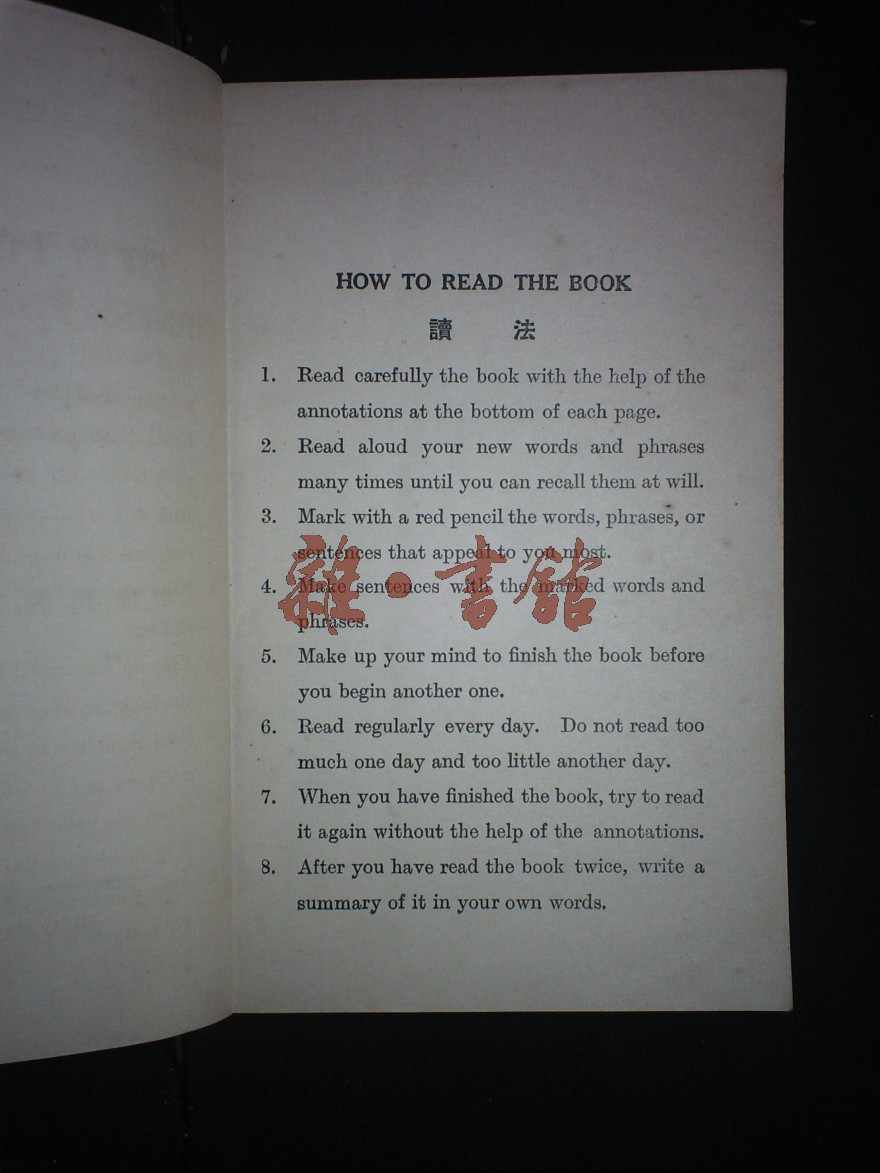 HOW TO READ THE BOOK
讀 法
1. Read carefully the book with the help of the
annotations at the bottom of each page.
2. Read aloud your new words and phrases
many times until you can recall them at will.
3. Mark with a red pencil the words, phrases, or
sentences that appeal to you most.
4. Make sentences with the marked words and
phrases.
雜·書館
5. Make up your mind to finish the book before
you begin another one.
6. Read regularly every day. Do not read too
much one day and too little another day.
7. When you have finished the book, try to read
it again without the help of the annotations.
8. After you have read the book twice, write a
summary of it in your own words.